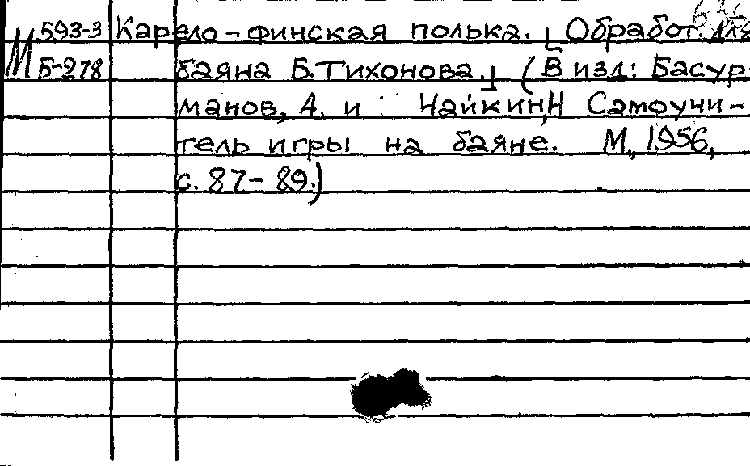 593-3 Карело-финская полька. [Обработ. для
М Б-278 баяна Б. Тихонова.] (В изд: Басур-
манов, А. и Чайкин, Н Самоучи-
тель игры на баяне. М., 1956,
с. 87-89.)